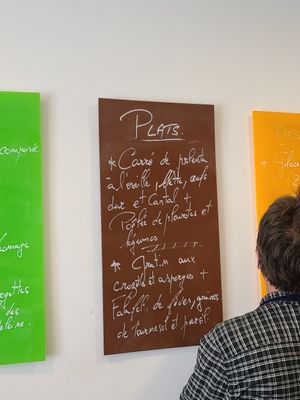 composé
fromage
des
PLATS.
* Carré de polenta
à l'oseille, blette, œufs
dur et Cantal +
Poêlée de pleurotes et
légumes
* Gratin aux
crozets et asperges +
Falafel de fèves, graines
de tournesol et persil.
DES
+ Glace